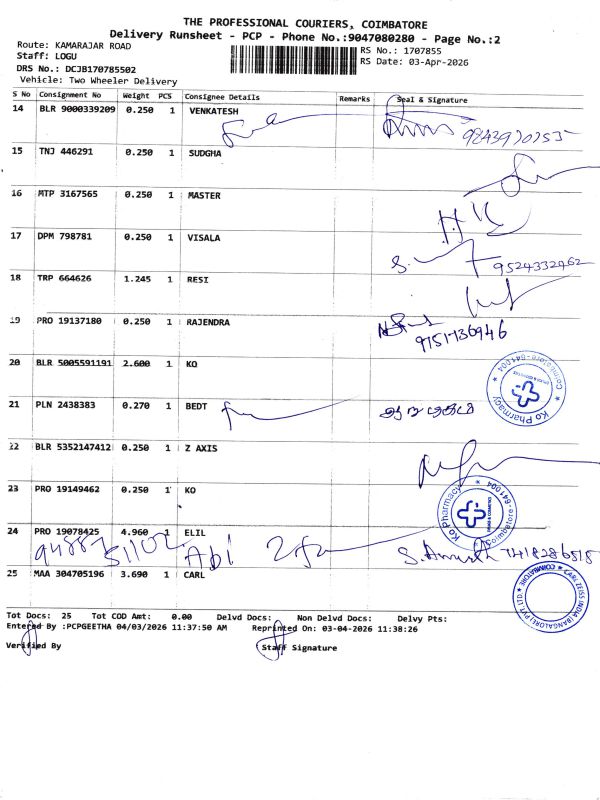 THE PROFESSIONAL COURIERS, COIMBATORE
Delivery Runsheet - PCP - Phone No.:9047080280 - Page No.:2
Route: KAMARAJAR ROAD
Staff: LOGU
DRS No.: DCJB170785502
Vehicle: Two Wheeler Delivery
RS No.: 1707855
RS Date: 03-Apr-2026
S No Consignment No Weight PCS Consignee Details Remarks Seal & Signature
14 BLR 9000339209 0.250 1 VENKATESH
15 TNJ 446291 0.250 1 SUDGHA
16 MTP 3167565 0.250 1 MASTER
17 DPM 798781 0.250 1 VISALA
9524332462
18 TRP 664626 1.245 1 RESI
19 PRO 19137180 0.250 1 RAJENDRA
9751736946
20 BLR 5005591191 2.600 1 KO
Ko Pharmacy Coimbatore-641004
21 PLN 2438383 0.270 1 BEDT
22 BLR 5352147412 0.250 1 Z AXIS
23 PRO 19149462 0.250 1 KO
Ko Pharmacy Coimbatore-641004
24 PRO 19078425 4.960 1 ELIL
94887 51102 Abi
25 MAA 304705196 3.690 1 CARL
CARL ZEISS INDIA (BANGALORE) PVT. LTD. COIMBATORE
Tot Docs: 25 Tot COD Amt: 0.00 Delvd Docs: Non Delvd Docs: Delvy Pts:
Entered By :PCPGEETHA 04/03/2026 11:37:50 AM Reprinted On: 03-04-2026 11:38:26
Verified By Staff Signature